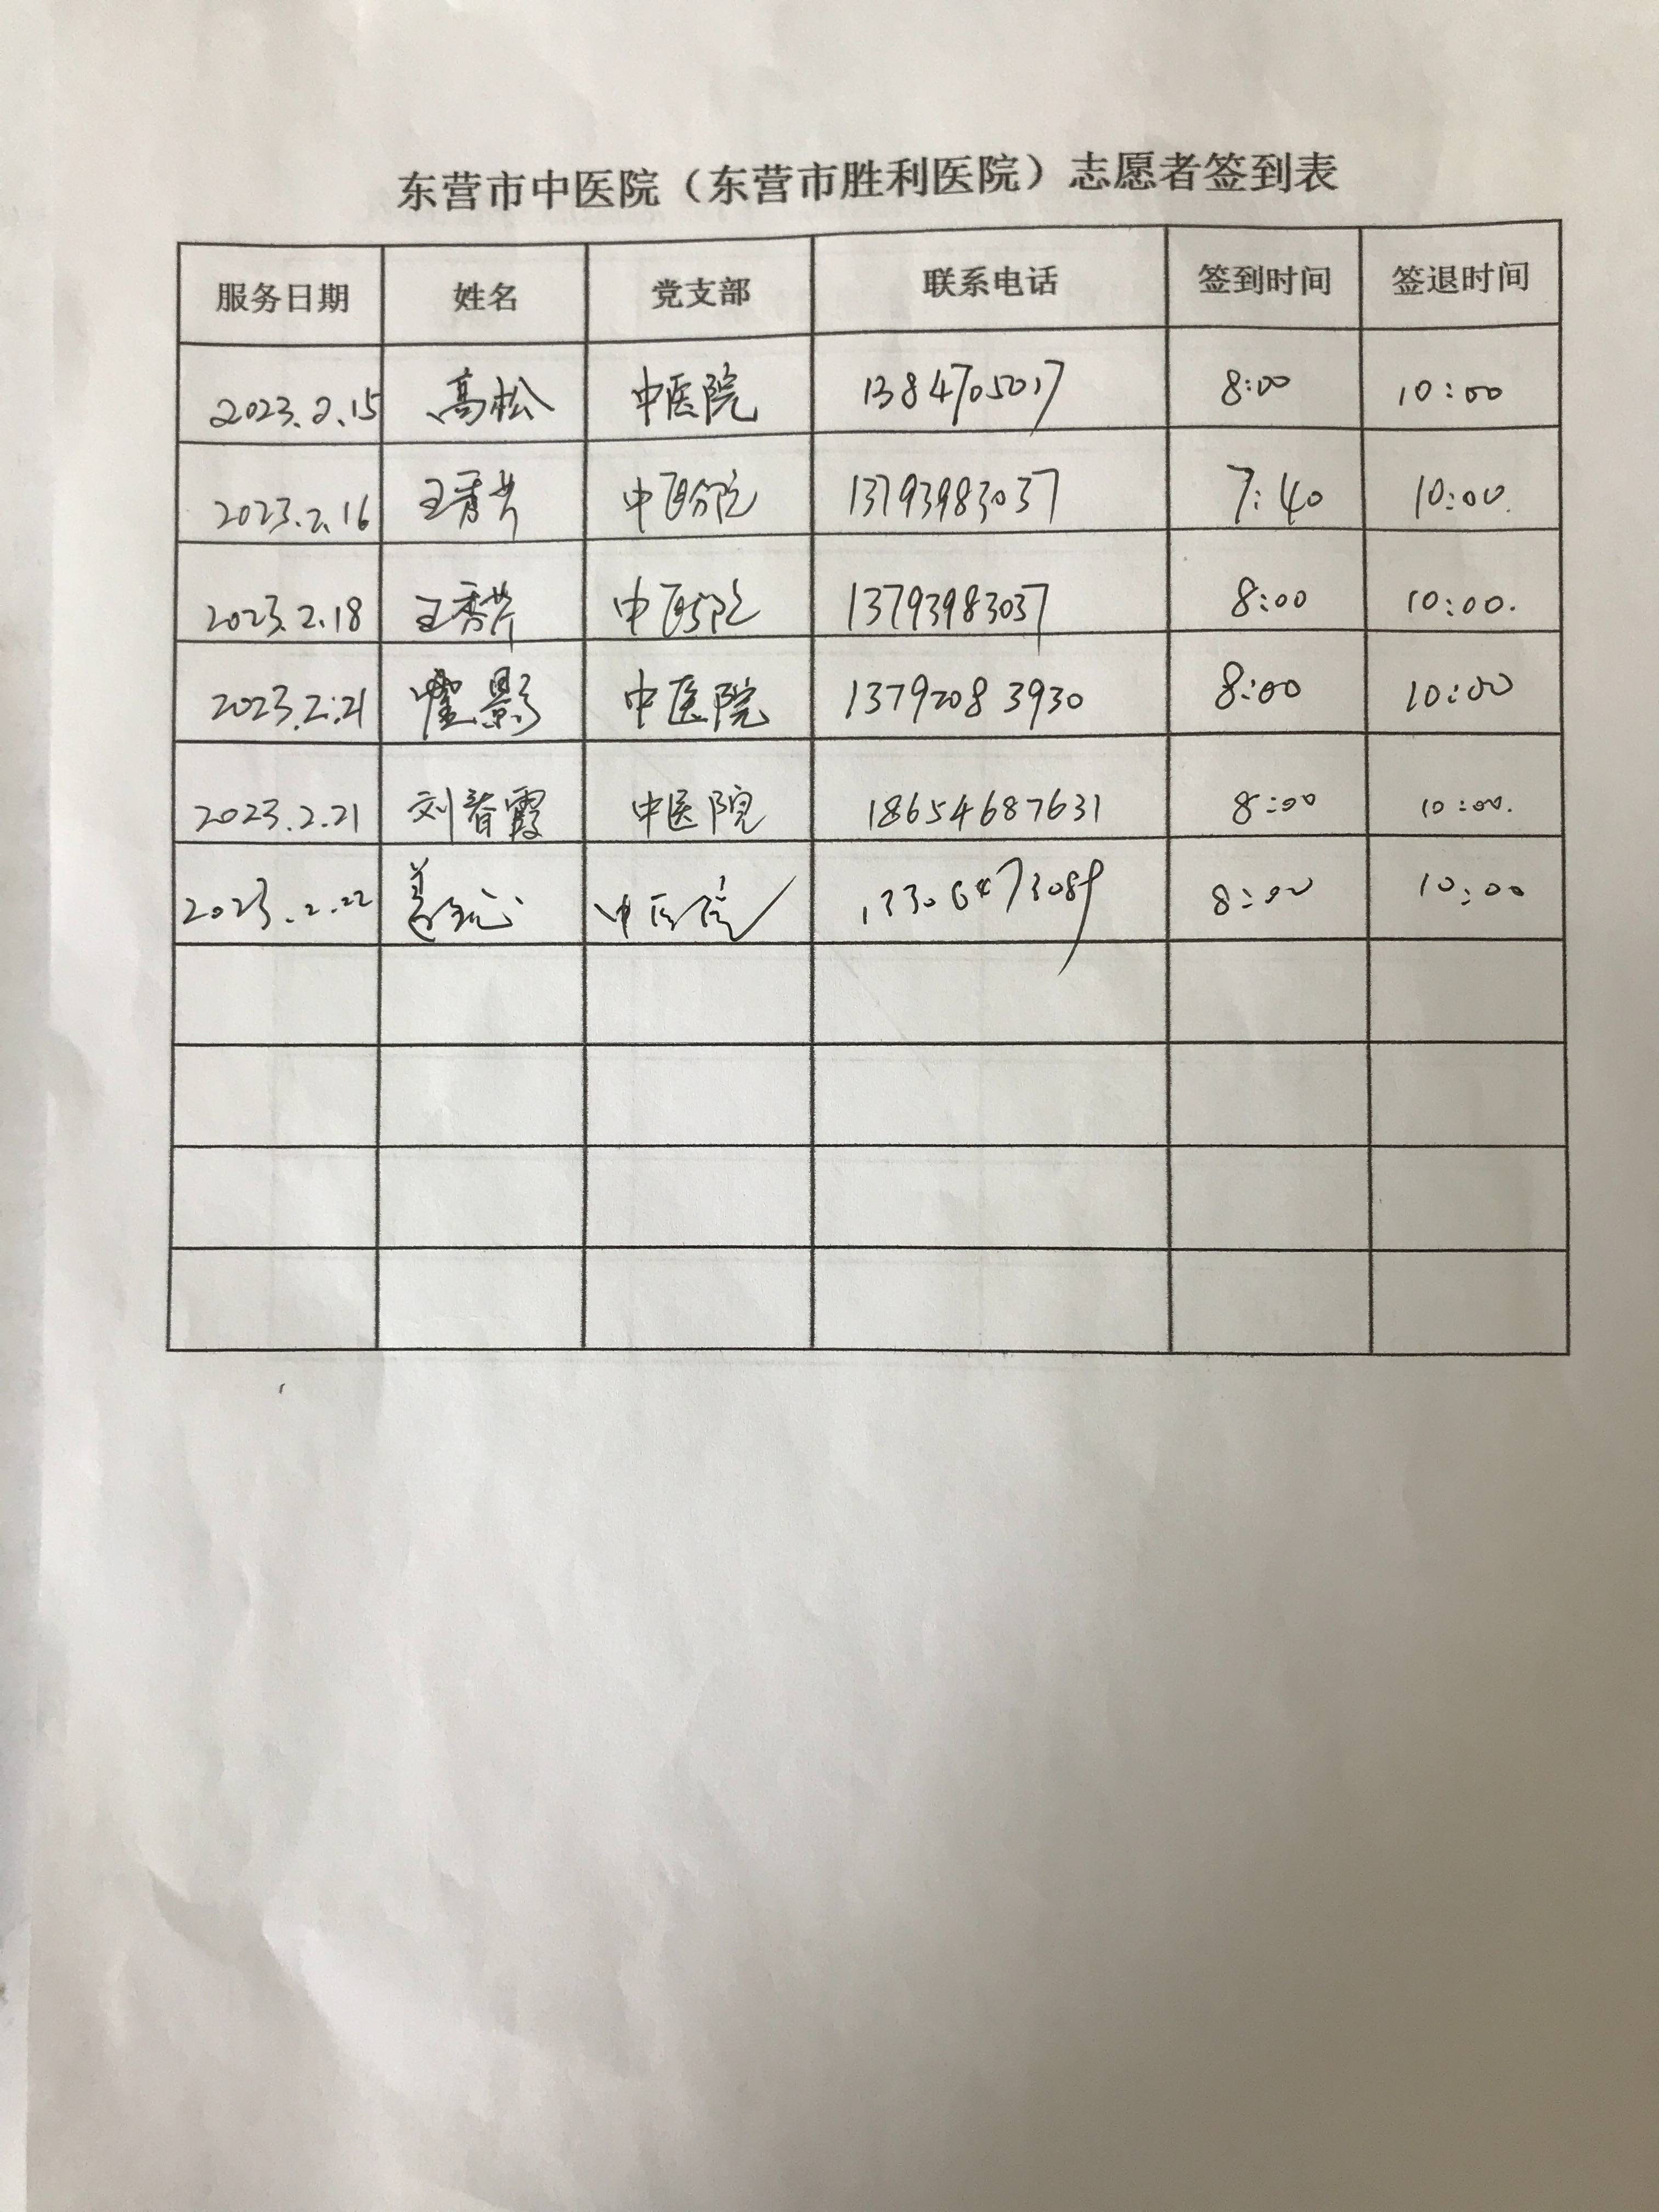 东营市中医院（东营市胜利医院）志愿者签到表
服务日期 姓名 党支部 联系电话 签到时间 签退时间
2023.2.15 高松 中医院 1384705017 8:00 10:00
2023.2.16 王秀芹 中医院 13793983037 7:40 10:00.
2023.2.18 王秀芹 中医院 13793983037 8:00 10:00.
2023.2.21 影 中医院 13792083930 8:00 10:00
2023.2.21 刘春霞 中医院 18654687631 8:00 10:00.
2023.2.22 姜 中医院 8:00 10:00